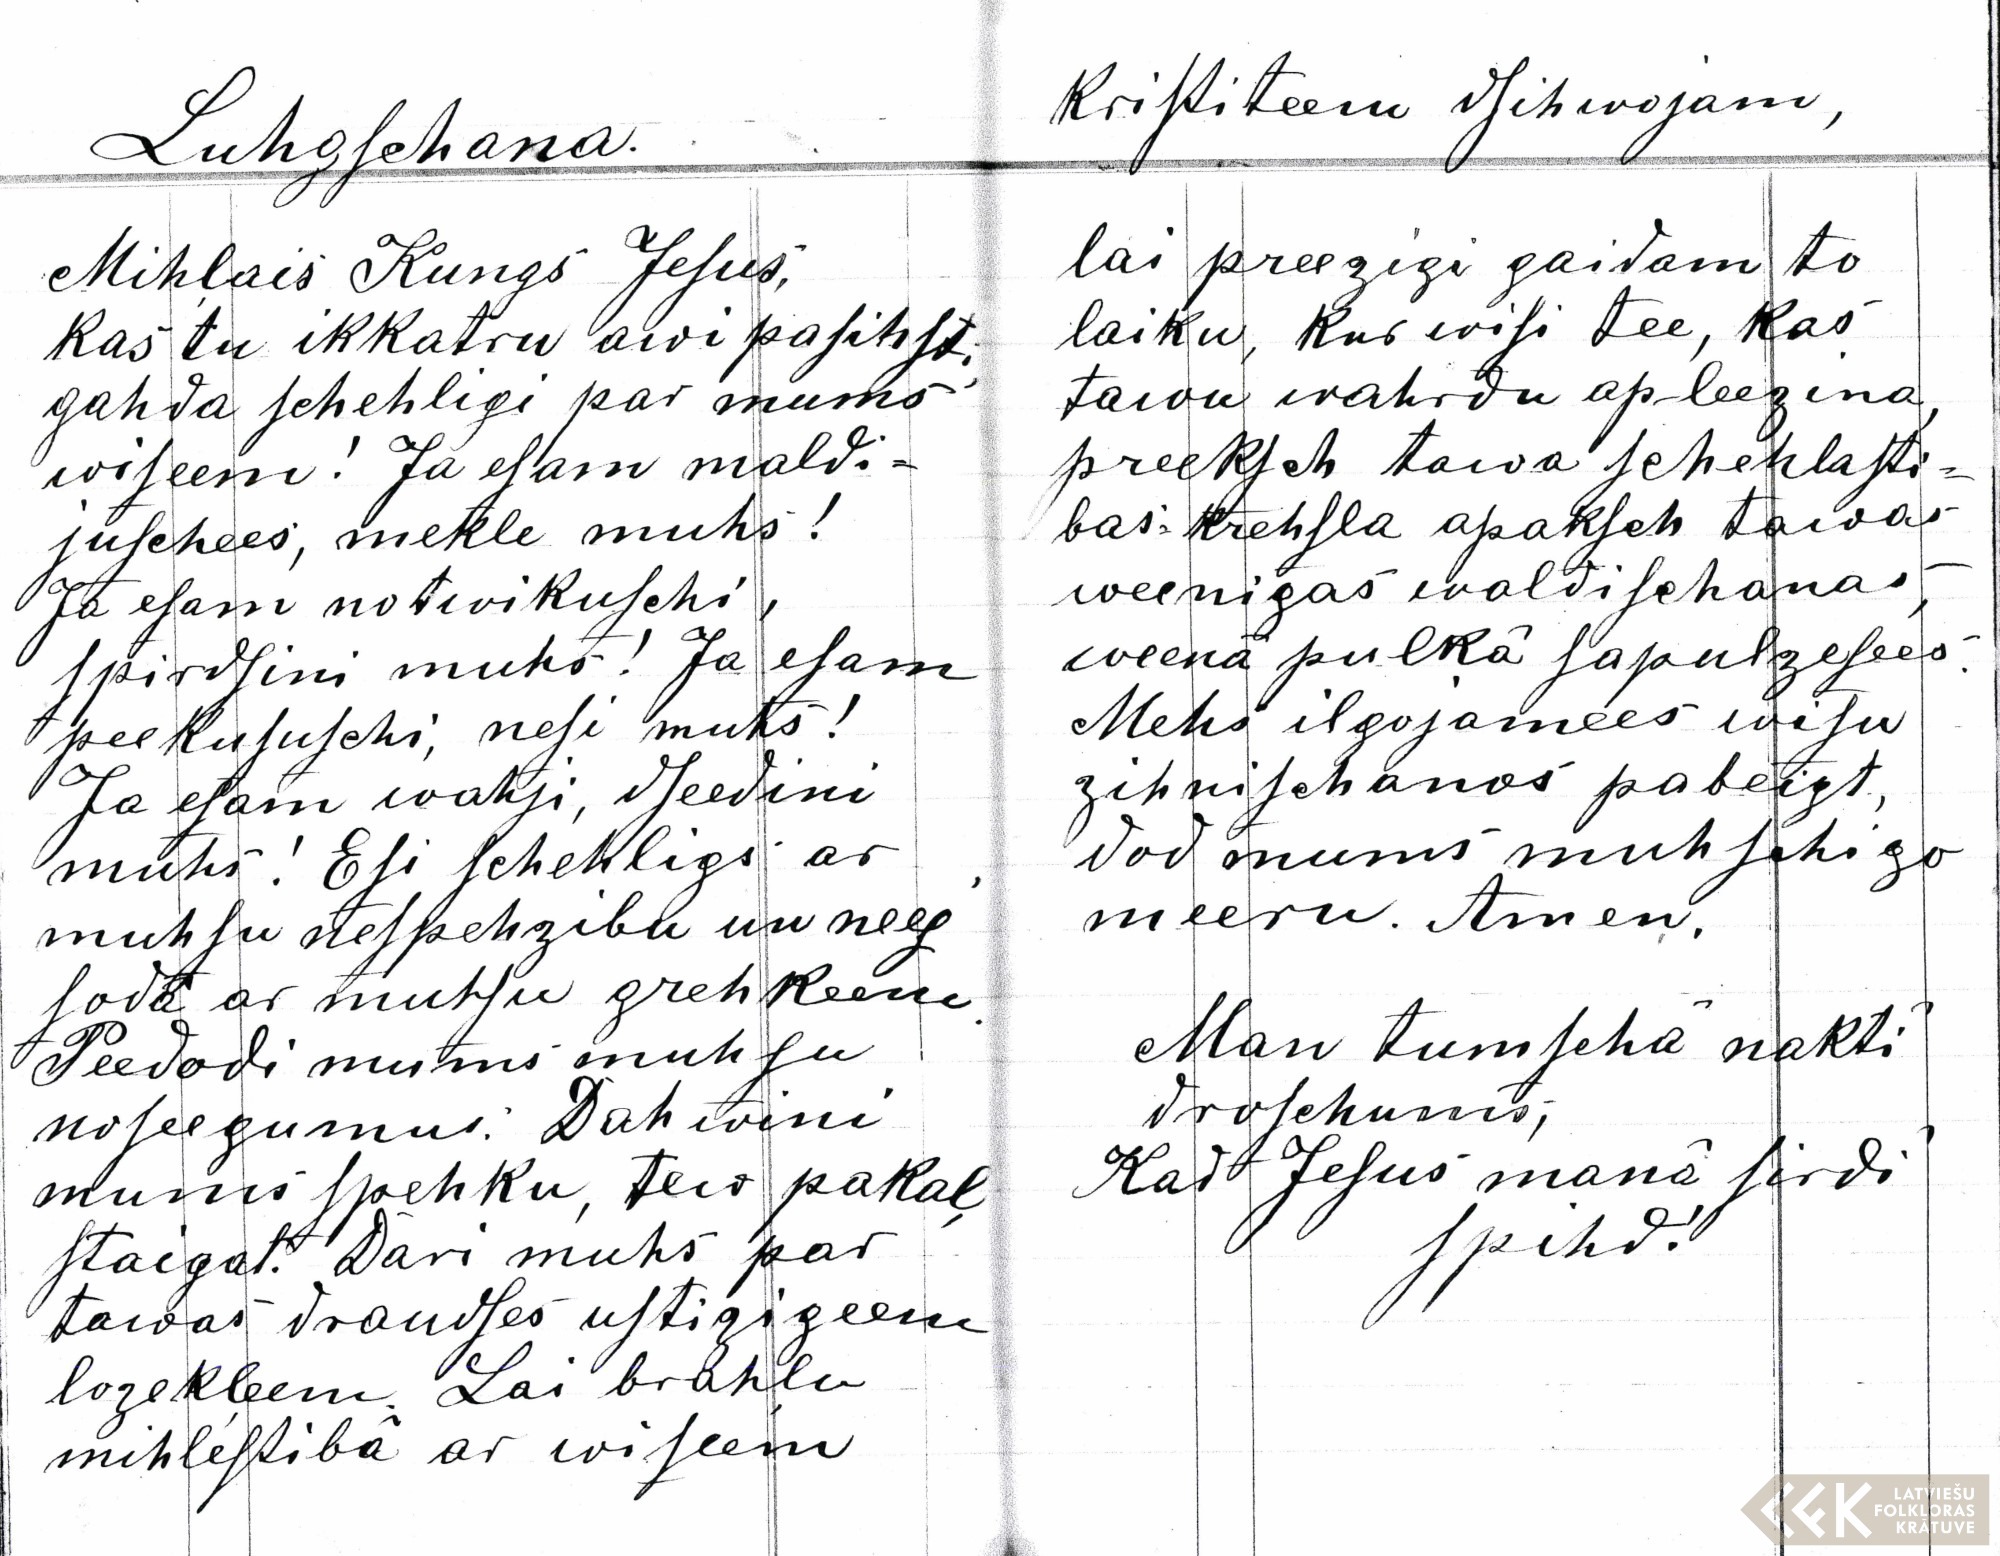 Luhgschana.
Mihļais Kungs Jesus,
kas tu ikkatru awi pasihst,
gahda schehligi par mums
wiseem! Ja esam maldi-
juschees, mekle muhs!
Ja esam notwikuschi,
spirdsini muhs! Ja esam
peekususchi, nesi muhs!
Ja esam wahji, dseedini
muhs! Esi schehligs ar
muhsu nespehzibu un nees
sodā ar muhsu grehkeem.
Peedodi mums muhsu
noseegumus. Dahwini
mums spehku, tew pakaļ
staigat. Dari muhs par
tawas draudses ustizigeem
lozekļeem. Lai brahļu
mihlestibâ ar wiseem
kristiteem dsihwojam,
lai preezigi gaidam to
laiku, kur wisi tee, kas
tawu wahrdu apleezina,
preeksch tawa schehlasti-
bas-krehsla apaksch tawas
weenigas waldischanas,
weenâ pulkâ sapulzesees.
Mehs ilgojamees wisu
zihnischanos pabeigt,
dod mums muhschigo
meeru. Amen.
Man tumschâ naktî
droschums,
Kad Jesus manâ sirdî
spihd!
LATVIEŠU
FOLKLORAS
KRĀTUVE